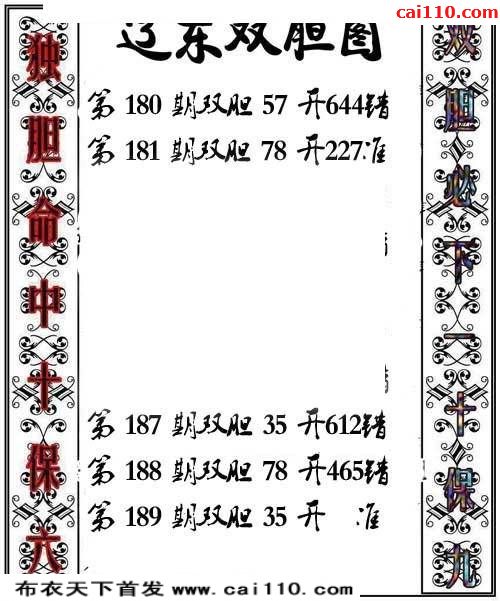 cai110.com
辽东双胆图
独胆命中十保六
第 180 期双胆 57 开644错
第 181 期双胆 78 开227准
第 187 期双胆 35 开612错
第 188 期双胆 78 开465错
第 189 期双胆 35 开 准
双胆必下一十保九
布衣天下首发 www.cai110.com